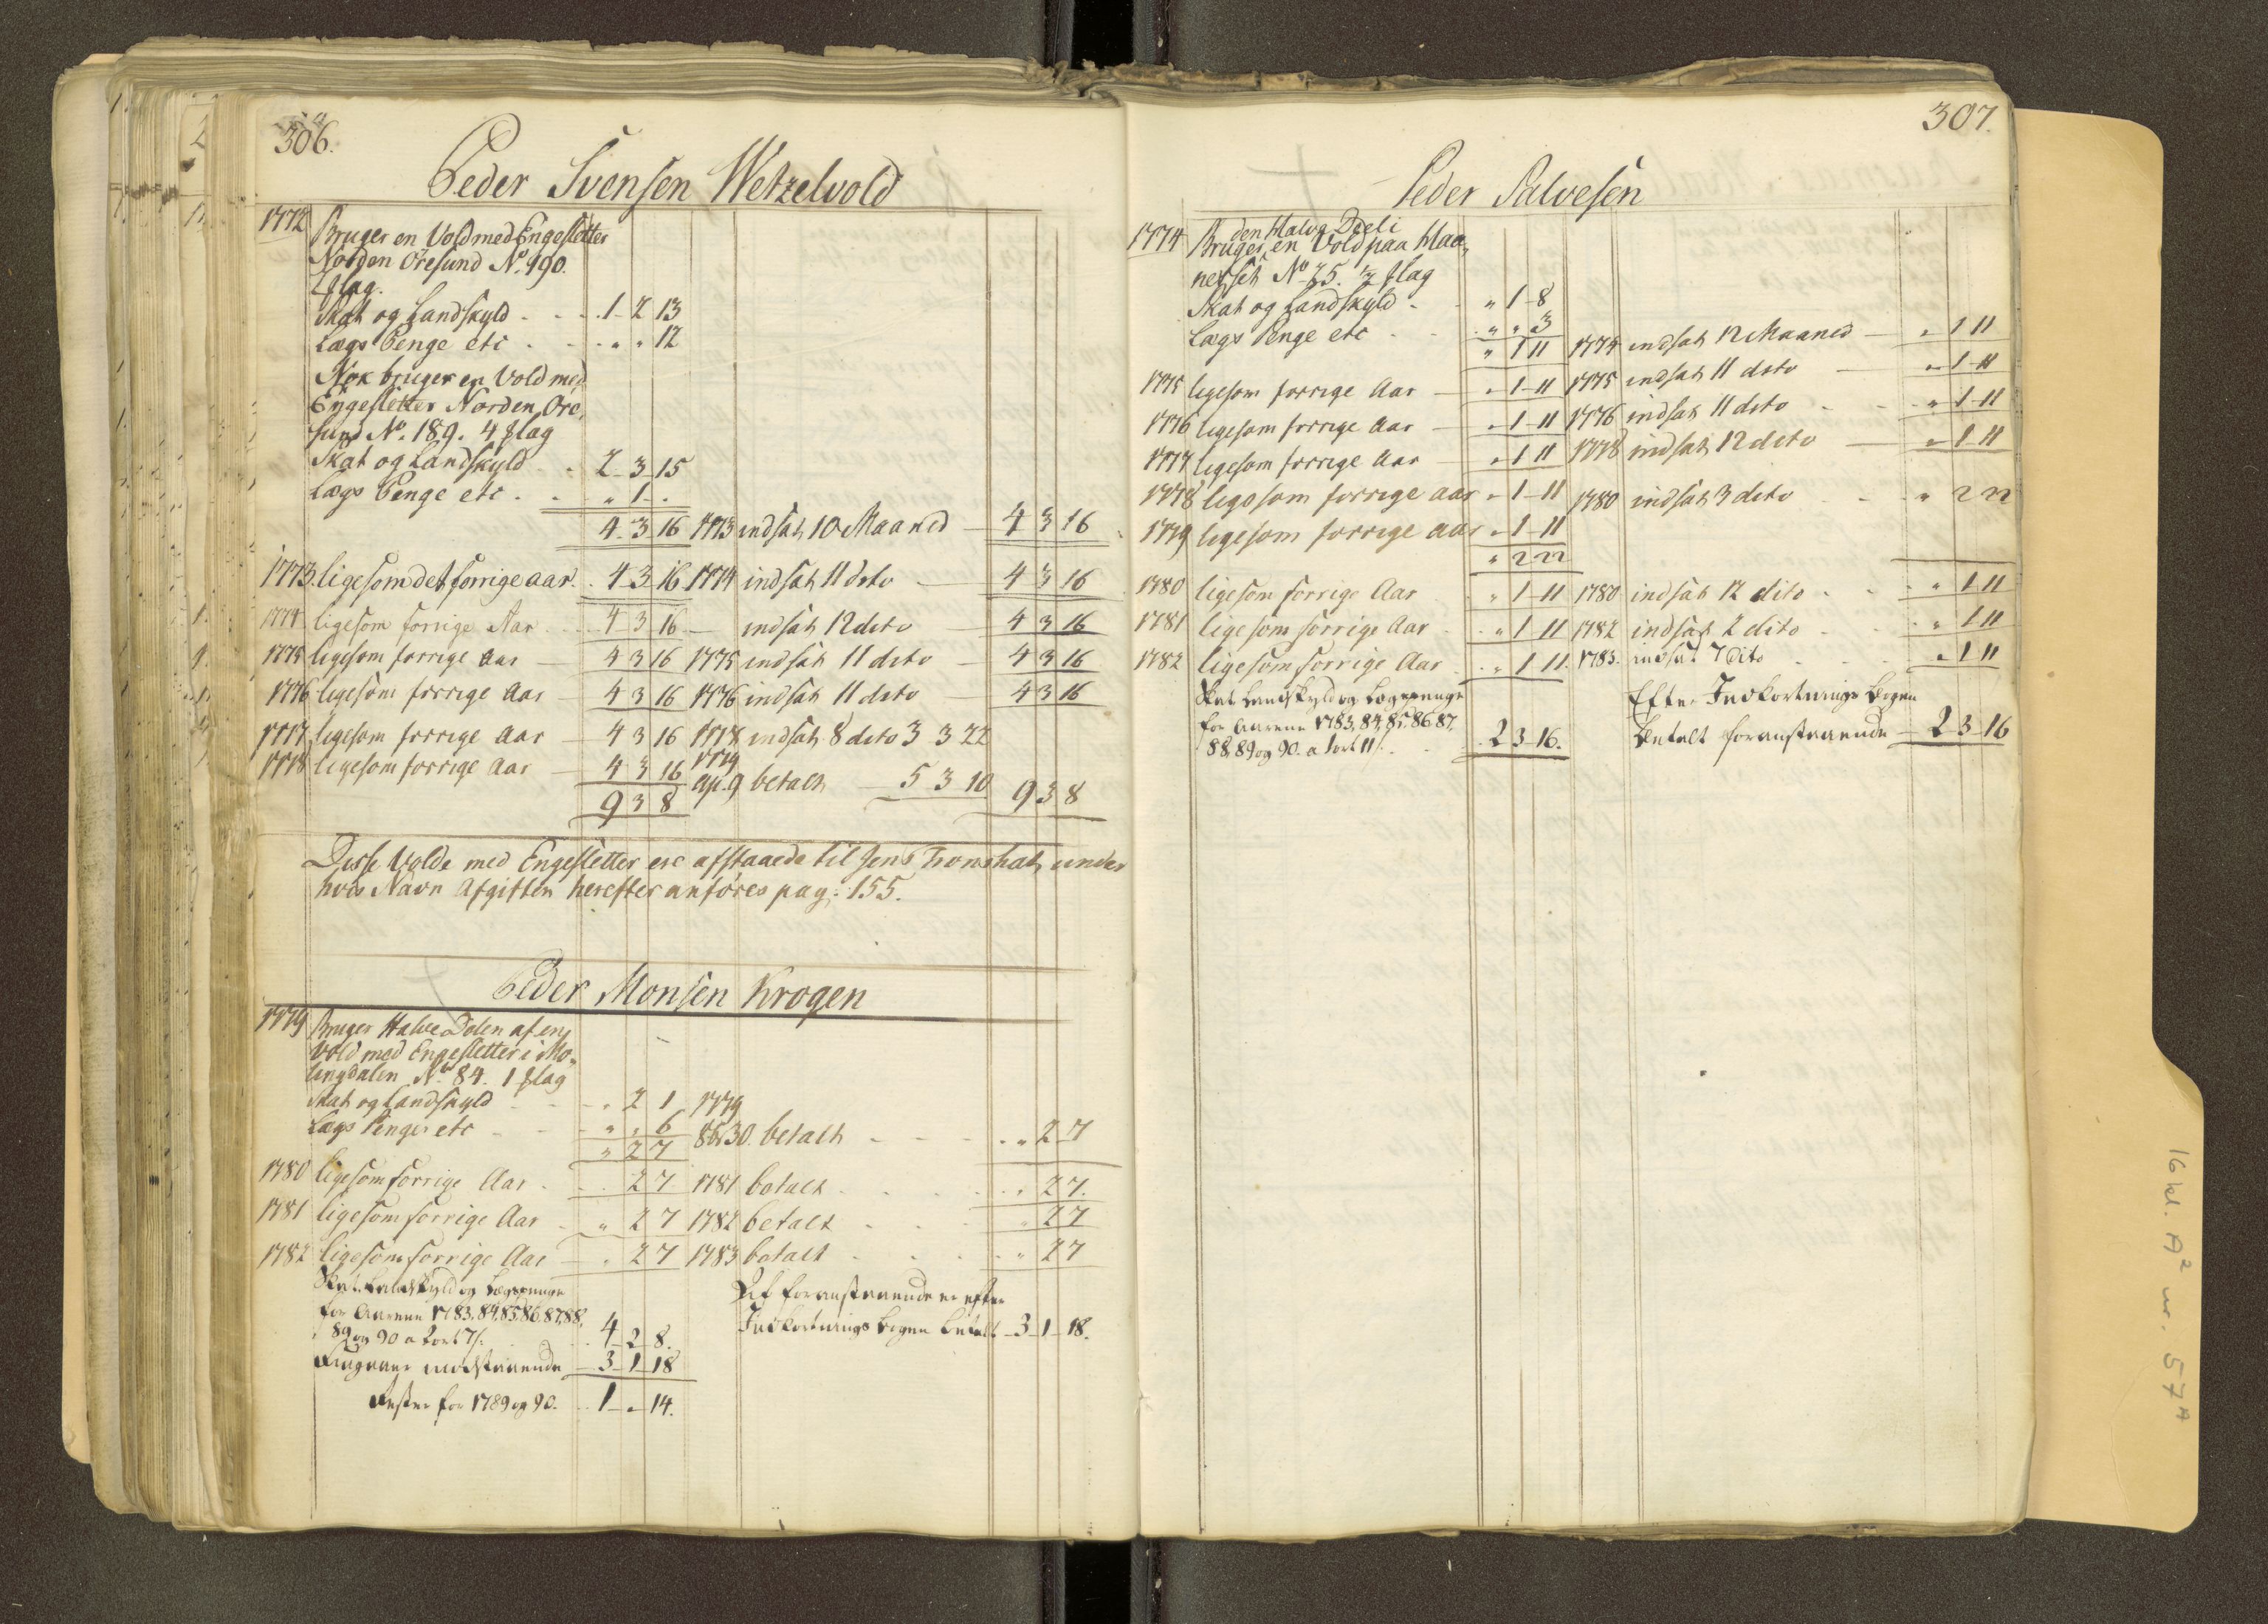 306.
Peder Svensen Wetzelvold
1772 Bruger en Vold med Engesletter
Norden Öresund No. 190.
2 flag.
Skat og Landskyld - - - 1 - 2 13
Lægs Penge etc . - . „ „ 12
Nok bruger en Vold med
Engesletter Norden Öre,
sund No. 189. 4 flag
Skat og Landskyld . . 2 - 3 15
Lægs Penge etc . . „ 1 - .
4 - 3 16 1773 indsat 10 Maaned — 4 3 16
1773 ligesom det forrige aar . 4 - 3 16 1774 indsat 11 dito — 4 3 16
1774 ligesom forrige Aar . . . 4 3 16 — indsat 12 dito — 4 3 16
1775 ligesom forrige Aar — 4 3 16 1775 indsat 11 dito — 4 3 16
1776 ligesom forrige Aar — 4 3 16 1776 indsat 11 dito — 4 3 16
1777 ligesom forrige Aar — 4 3 16 1778 indsat 8 dito 3 3 22
1778 ligesom forrige Aar — 4 3 16 1779
ap. 9 betalt — 5 3 10
9 3 8 9 3 8
Disse Volde med Engesletter ere afstaaede til Jens Tronshat, under
hvis Navn Afgiften herefter anföres pag: 155.
Peder Monsen Krogen
1779 Bruger Halve Delen af en
Vold med Engesletter i Mo-
lingdalen No. 84. 1 flag
Skat og Landskyld - - - „ 2 1 1779
Lægs Penge etc - - „ „ 6 8br 30. betalt - - - „ 2 - 7
„ 2 7
1780 ligesom forrige Aar . . . 2 7 1781 betalt . . . . „ 2 7.
1781 ligesom forrige Aar - „ 2 7 1782 betalt . . . „ 2 7
1782 ligesom forrige Aar — „ 2 7 1783 betalt . . . „ 2 7
Skat Landskyld og Lægspenge
for Aarene 1783, 84, 85, 86, 87, 88,
89 og 90 a 2 ort 7 s. . . 4 - 2 - 8.
foranstaaende er efter
Indkortnings Bogen betalt - 3 - 1 - 18.
modstaaende — 3 - 1 - 18
Rester for 1789 og 90. . . 1 - „ - 14.
307.
Peder Salvesen
den Halve Deel i
1774 Bruger en Vold paa Maa,
nesset No 75. 1/2 flag
Skat og Landskyld - - „ 1 - 8
Lægs Penge etc - - „ „ 3
„ 1 11 1774 indsat 12 Maaned — „ 1 11
1775 ligesom forrige Aar — „ 1 - 11 1775 indsat 11 dito — „ 1 - 11
1776 ligesom forrige Aar — „ 1 - 11 1776 indsat 11 dito - - „ 1 - 11
1777 ligesom forrige Aar — „ 1 11 1778 indsat 12 dito — „ 1 11
1778 ligesom forrige aar „ 1 - 11 1780 indsat 3 dito - - „ 2 22
1779 ligesom forrige aar „ 1 - 11
„ 2 22
1780 ligesom forrige Aar . „ 1 - 11 1780 indsat 12 dito . . . „ 1 11
1781 ligesom forrige Aar . „ 1 11 1782 indsat 2 dito . . „ 1 11
1782 ligesom forrige Aar . „ 1 11. 1783. indsat 7 Dito . . . „ 1 11
Skat Landskyld og Lægspenge
for Aarene 1783, 84, 85, 86, 87,
88, 89 og 90. a 1 ort 11 s. . . 2 - 3 - 16.
Efter Indkortnings Bogen
betalt foranstaaende — 2 - 3 - 16
16 kl. A² nr. 57 A